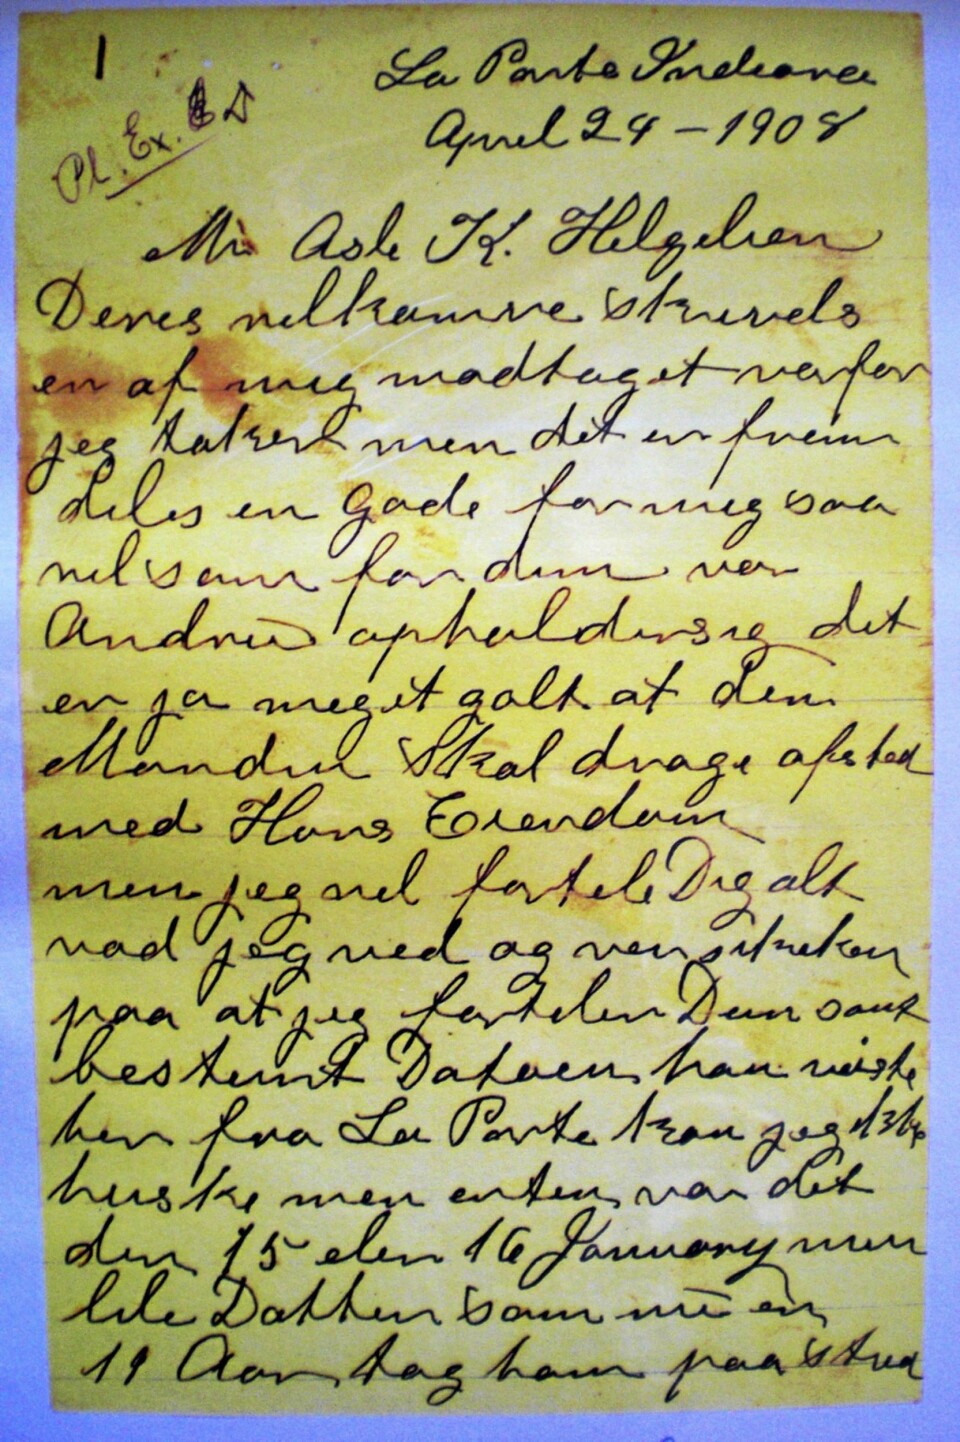 1
Pl. Ex. D
La Porte Indiana
April 24 – 1908
Mr Asle K. Helgelien
Deres velkomne skrivels
er af mig modtaget vorfor
jeg taker men det er frem
deles en Gade for mig saa
vel som for dem vor
Andrew opholder sig det
er ja meget galt at den
Manden Skal drage afsted
med Hans Eiendom
men jeg vil fortele Dig alt
vad jeg ved og ver sikeker
paa at jeg forteler Dem sant
bestemt Datoen han reiste
her fra La Porte kan jeg ikke
huske men enten var det
den 15 eler 16 January min
lile Datter som nu er
11 Aar tog ham paa stred